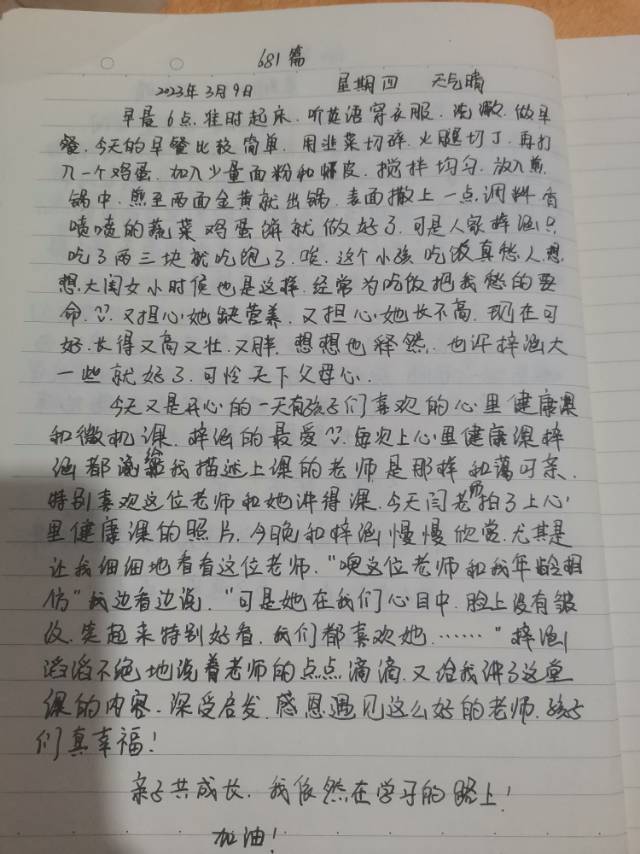 681篇
2023年3月9日 星期四 天气晴
早晨6点.准时起床.听英语穿衣服.洗漱.做早
餐.今天的早餐比较简单.用韭菜切碎.火腿切丁.再打
入一个鸡蛋.加入少量面粉和虾皮.搅拌均匀.放入煎
锅中.煎至两面金黄就出锅.表面撒上一点调料香
喷喷的蔬菜鸡蛋饼就做好了.可是人家梓涵只
吃了两三块就吃饱了.唉.这个小孩吃饭真愁人.想
想大闺女小时候也是这样.经常为吃饭把我愁的要
命.又担心她缺营养.又担心她长不高.现在可
好.长得又高又壮.又胖.想想也释然.也许梓涵大
一些就好了.可怜天下父母心.
今天又是开心的一天有孩子们喜欢的心里健康课
和微机课.梓涵的最爱.每次上心里健康课梓
涵都给我描述上课的老师是那样和蔼可亲.
特别喜欢这位老师和她讲得课.今天闫老师拍了上心
里健康课的照片.今晚和梓涵慢慢欣赏.尤其是
让我细细地看看这位老师."噢这位老师和我年龄相
仿"我边看边说."可是她在我们心目中.脸上没有皱
纹.笑起来特别好看.我们都喜欢她……"梓涵
滔滔不绝地说着老师的点点滴滴.又给我讲了这堂
课的内容.深受启发.感恩遇见这么好的老师.孩子
们真幸福!
亲子共成长.我依然在学习的路上!
加油!